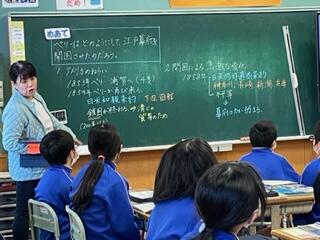 だめ!
めあて
ペリーは、どのようにして、江戸幕府を
開国させたのだろう。
1.アメリカのねらい
1853年ペリー 浦賀へ
1854年ペリーが再び来る
日米和親条約 下田 函館
鎖国が終わる
貿易のため
2.開国による
1858年 日米修好通商条約
神奈川、長崎、新潟、兵庫
不平等
幕府